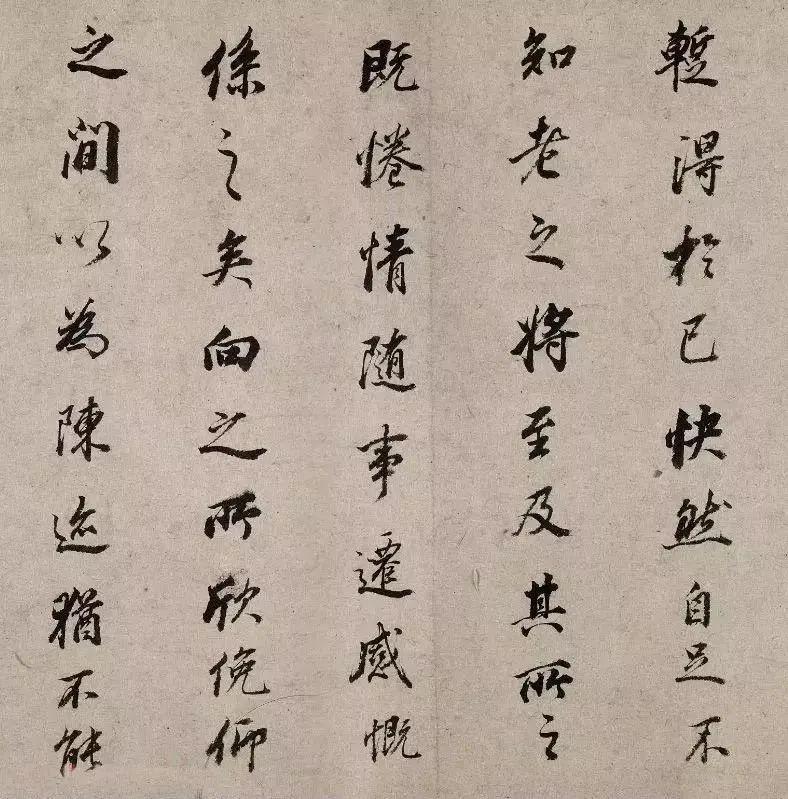 暫得於己快然自足不
知老之將至及其所之
既惓情隨事遷感慨
係之矣向之所欣俛仰
之間以為陳迹猶不能